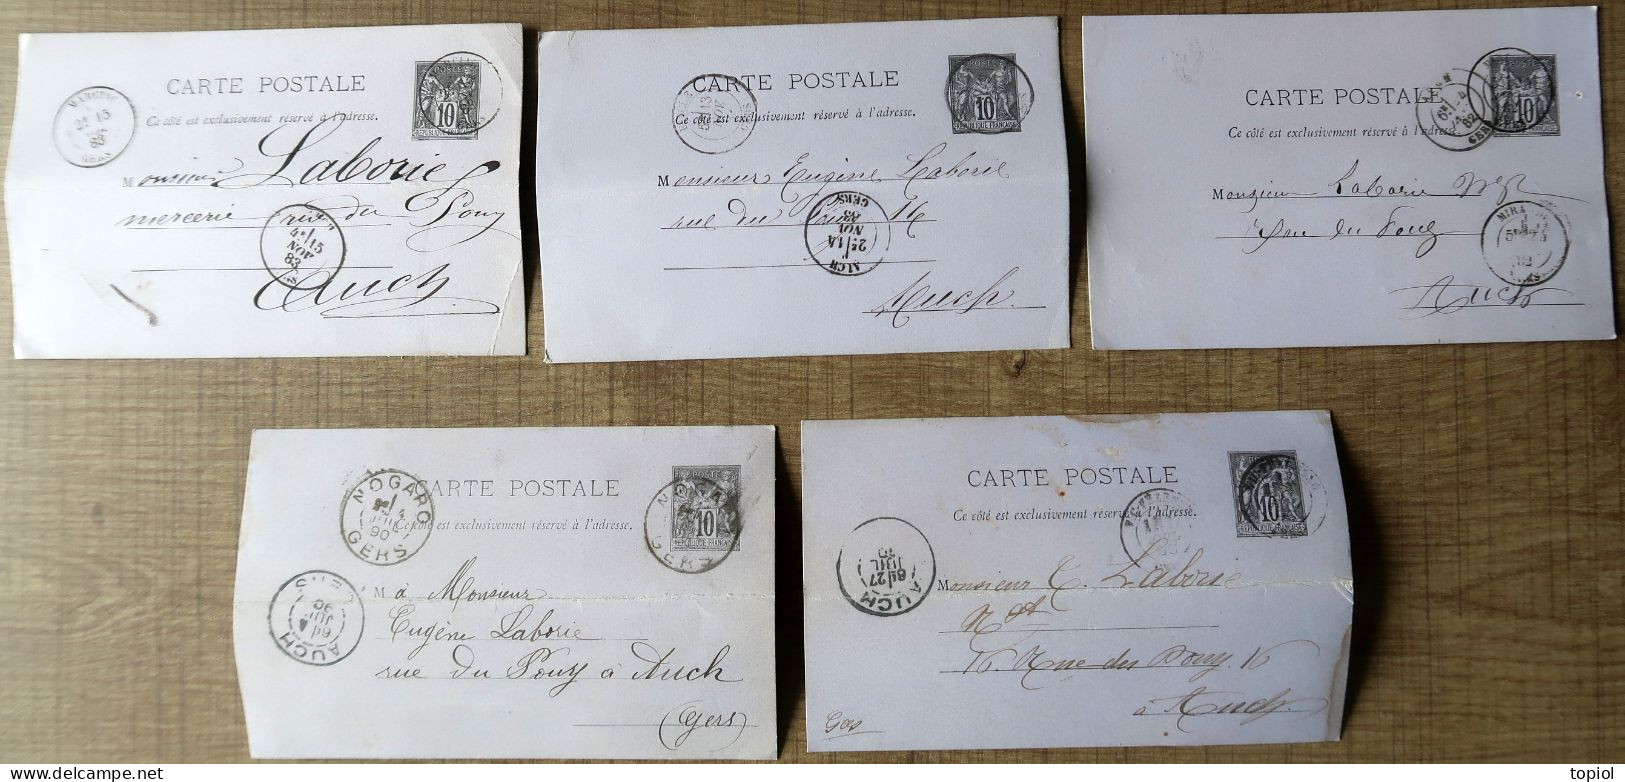 CARTE POSTALE
Ce côté est exclusivement réservé à l'adresse.
POSTE
10
RÉPUBLIQUE FRANÇAISE
GERS
83
Monsieur Laborie
mercerie rue du Pouy
4E 15
NOV
83
Auch
CARTE POSTALE
Ce côté est exclusivement réservé à l'adresse.
POSTE
10
RÉPUBLIQUE FRANÇAISE
5E 13
NOV
Monsieur Eugène Laborie
rue du Pouy 16
AUCH
NOV
83
GERS
Auch.
CARTE POSTALE
Ce côté est exclusivement réservé à l'adresse.
POSTE
10
82
Monsieur Laborie Nt
Rue du Pouy
82
Auch
CARTE POSTALE
Ce côté est exclusivement réservé à l'adresse.
POSTE
10
RÉPUBLIQUE FRANÇAISE
NOGARO
JUIL
90
GERS
AUCH
90
M à Monsieur
Eugène Laborie
rue du Pouy à Auch
(Gers)
CARTE POSTALE
Ce côté est exclusivement réservé à l'adresse.
10
AUCH
6E 27
JUIL
Monsieur E. Laborie
Nt
16. Rue du Pouy. 16
à Auch.
Gers
topiol